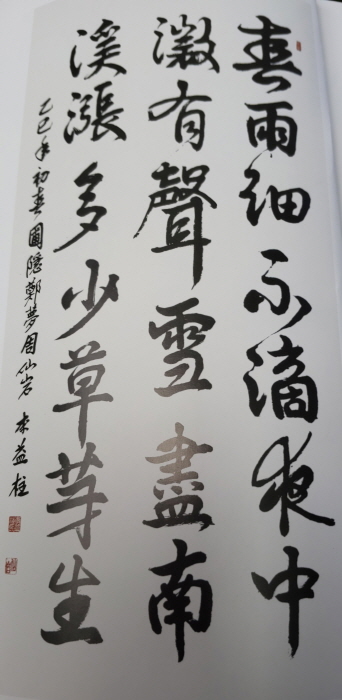 春雨細不滴夜中
微有聲雪盡南
溪漲多少草芽生
乙巳年初春圃隱鄭夢周仙岩 李益柱